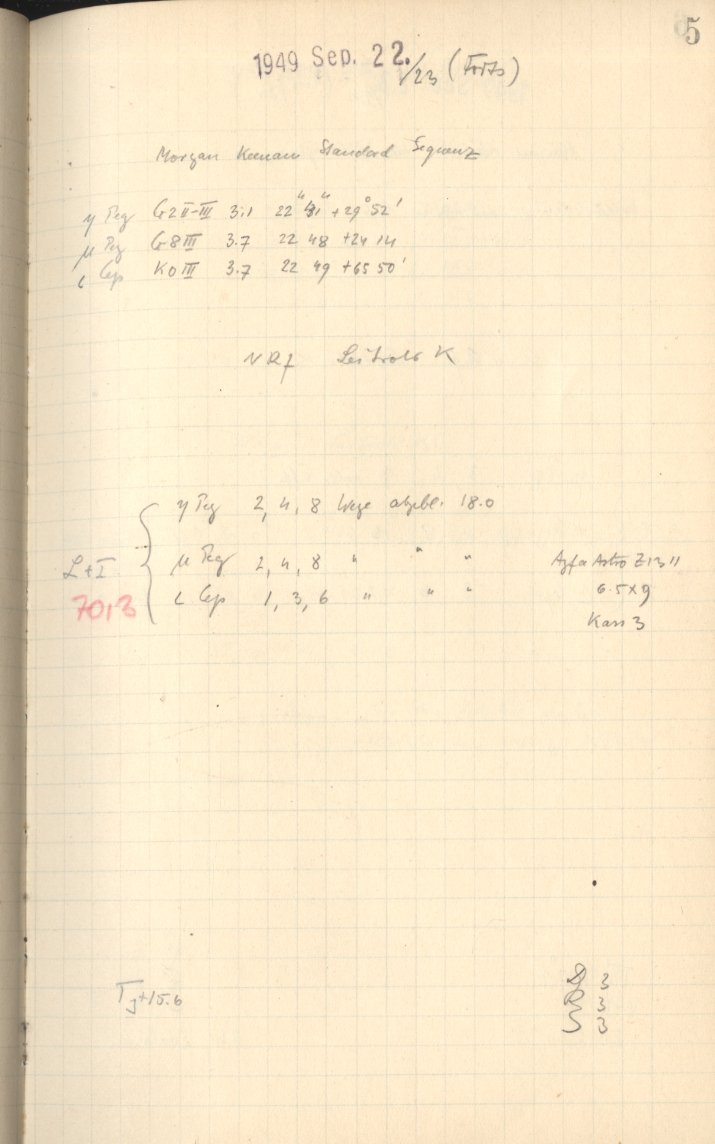 5
1949 Sep. 22./23 (Forts)
Morgan Keenan Standard Sequenz
η Peg G2 II-III 3.1 22 41 +29° 52'
μ Peg G8 III 3.7 22 48 +24 14
ι Cep K0 III 3.7 22 49 +65 50'
η Peg 2, 4, 8 Wege abgebl. 18.0
L+I μ Peg 2, 4, 8 " " " Agfa Astro Z1311
7013 ι Cep 1, 3, 6 " " " 6.5x9
Kass 3
T +15.6
3
3
S 3